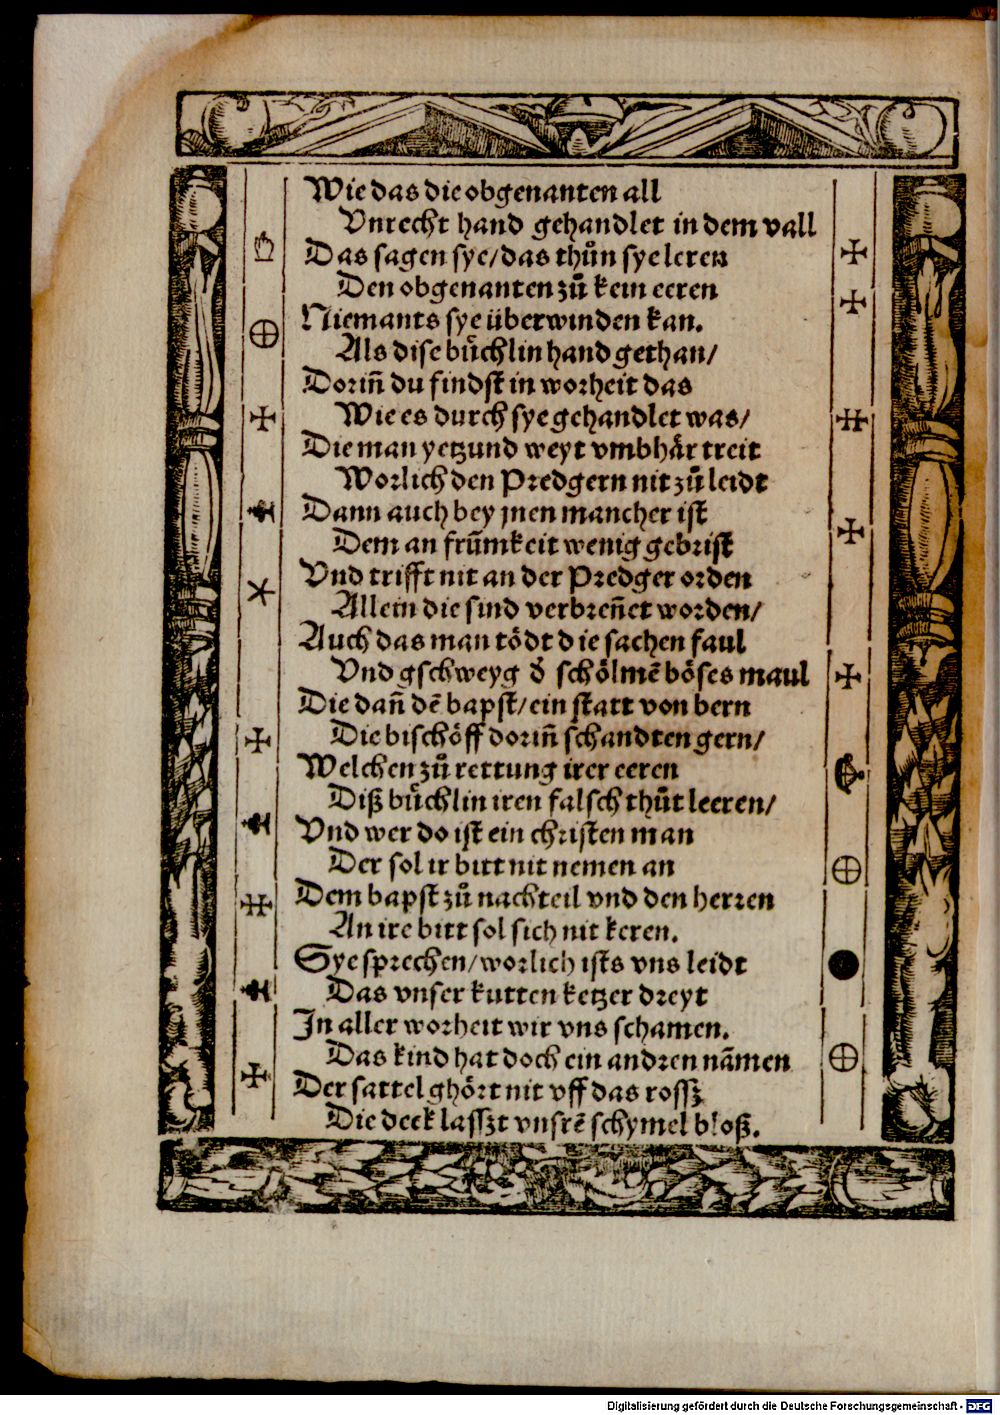 Wie das die obgenanten all
Vnrecht hand gehandlet in dem vall
Das sagen sye/das thůn sye leren
Den obgenanten zů kein eeren
Niemants sye überwinden kan.
Als dise bůchlin hand gethan/
Dorin̄ du findst in worheit das
Wie es durch sye gehandlet was/
Die man yetzund weyt vmbhår treit
Worlich den Predgern nit zů leidt
Dann auch bey jnen mancher ist
Dem an frūmkeit wenig gebrist
Vnd trifft nit an der Predger orden
Allein die sind verbren̄et worden/
Auch das man tödt die sachen faul
Vnd gschweyg d̄ schölmē böses maul
Die dan̄ dē bapst/ein statt von bern
Die bischöff dorin̄ schandten gern/
Welchen zů rettung irer eeren
Diß bůchlin iren falsch thůt leeren/
Vnd wer do ist ein christen man
Der sol ir bitt nit nemen an
Dem bapst zů nachteil vnd den herren
An ire bitt sol sich nit keren.
Sye sprechen/worlich ists vns leidt
Das vnser kutten ketzer dreyt
In aller worheit wir vns schamen.
Das kind hat doch ein andren nāmen
Der sattel ghört nit vff das rossz
Die deck lasszt vnsrē schymel bloß.
Digitalisierung gefördert durch die Deutsche Forschungsgemeinschaft - DFG